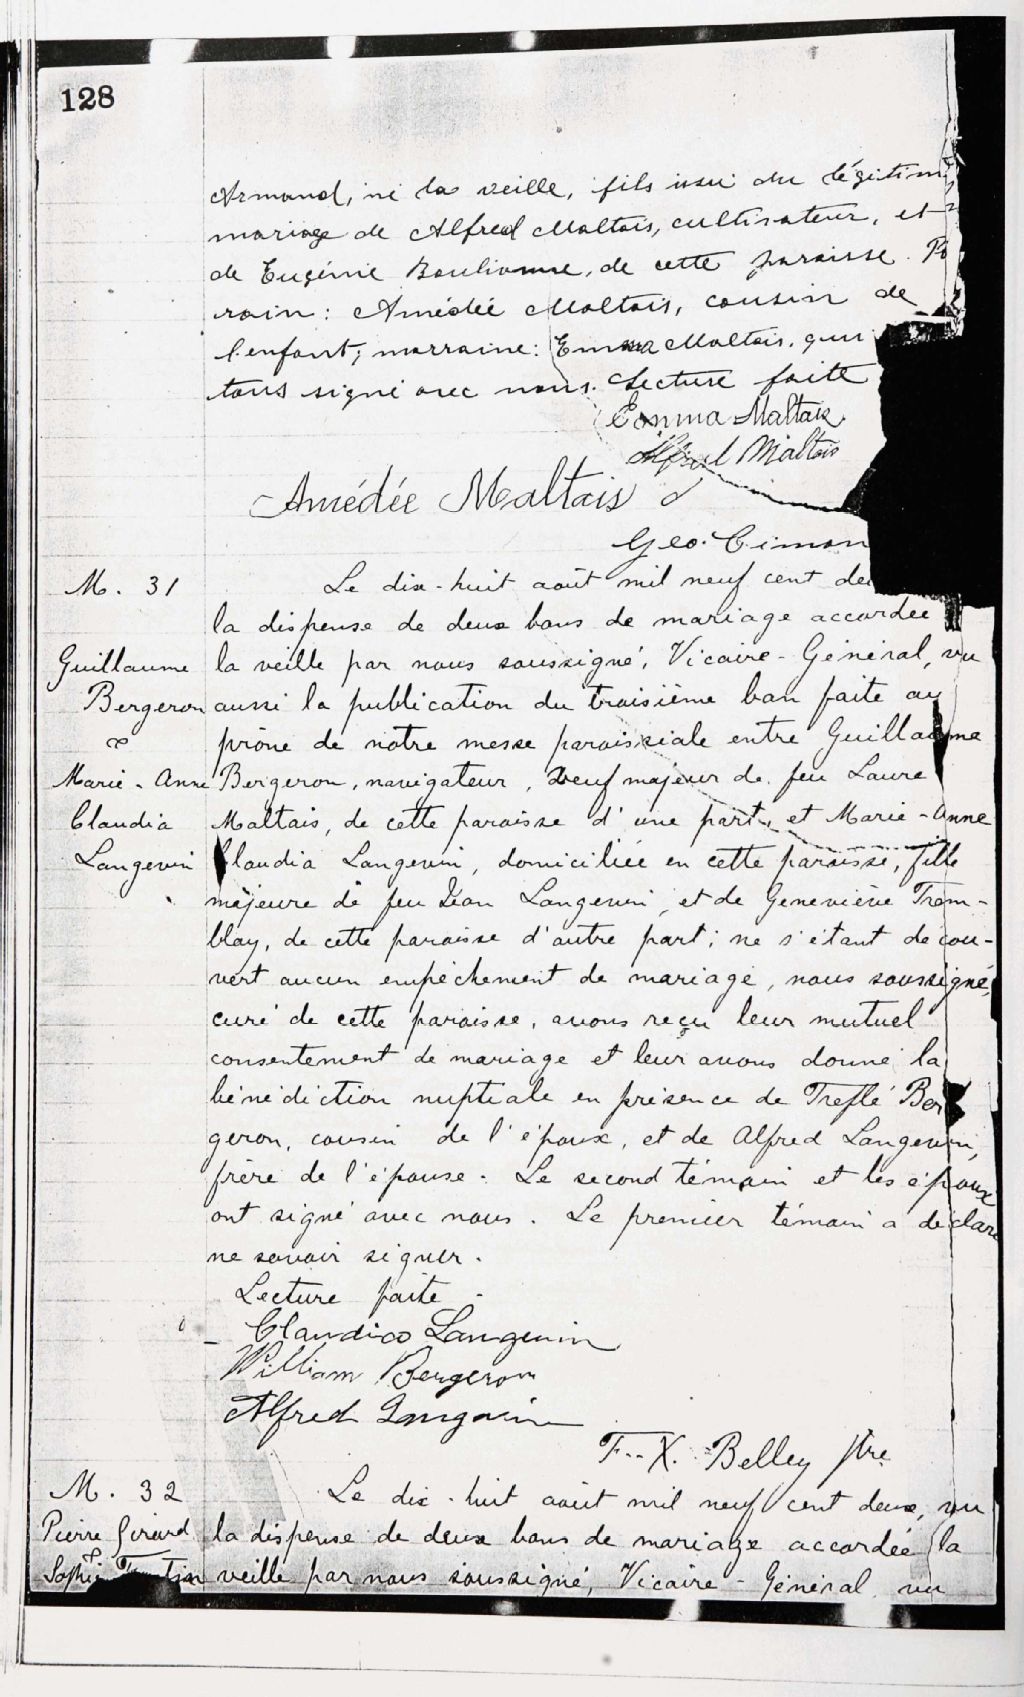 128
Armand, né la veille, fils issu du légitim
mariage de Alfred Maltais, cultivateur, et
de Eugénie Boulianne, de cette paroisse. Pa
rain: Amédée Maltais, cousin de
l'enfant; marraine: Emma Maltais, qui
tous signé avec nous. Lecture faite
Emma Maltais
Alfred Maltais
Amédée Maltais
Geo. Cimon
M. 31
Guillaume
Bergeron
&
Marie-Anne
Claudia
Langevin
Le dix-huit août mil neuf cent deu
la dispense de deux bans de mariage accordée
la veille par nous soussigné, Vicaire-Général, vu
aussi la publication du troisième ban faite au
prône de notre messe paroissiale entre Guillaume
Bergeron, navigateur, veuf majeur de feu Laure
Maltais, de cette paroisse d'une part, et Marie-Anne
Claudia Langevin, domiciliée en cette paroisse, fille
majeure de feu Jean Langevin, et de Geneviève Trem-
blay, de cette paroisse d'autre part; ne s'étant décou-
vert aucun empêchement de mariage, nous soussigné,
curé de cette paroisse, avons reçu leur mutuel
consentement de mariage et leur avons donné la
bénédiction nuptiale en présence de Treflé Ber
geron, cousin de l'époux, et de Alfred Langevin,
frère de l'épouse. Le second témoin et les époux
ont signé avec nous. Le premier témoin a déclaré
ne savoir signer.
Lecture faite.
Claudia Langevin
William Bergeron
Alfred Langevin
F.-X. Belley ptre
M. 32
Pierre Girard
&
Sophie
Le dix-huit août mil neuf cent deux, vu
la dispense de deux bans de mariage accordée la
veille par nous soussigné, Vicaire-Général, vu